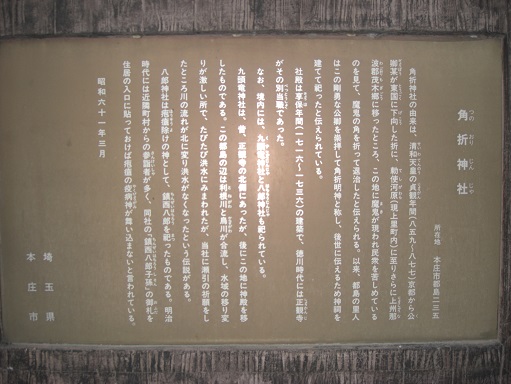 角折神社
つの おり じん じゃ
所在地 本庄市都島二三五
角折神社の由来は、清和天皇の貞観年間(八五九〜八七七)京都から公
卿某が東国に下向した折に、勅使河原(現上里町内)に至りさらに上州那
波郡茂木郷に移ったところ、この地に魔鬼が現われ民衆を苦しめている
のを見て、魔鬼の角を折って退治したと伝えられる。以来、都島の里人
はこの剛勇な公卿を崇拝して角折明神と称し、後世に伝えるため神祠を
建てて祀ったと伝えられている。
社殿は享保年間(一七一六〜一七三六)の建築で、徳川時代には正観寺
がその別当職であった。
なお、境内には、九頭竜神社と八郎神社も祀られている。
九頭竜神社は、昔、正観寺の北側にあったが、後にこの地に神殿を移
したものである。この都島の辺は利根川と烏川が合流し、水域の移り変
りが激しい所で、たびたび洪水にみまわれたが、当社に瀬引の祈願をし
たところ川の流れが北に変り洪水がなくなったという伝説がある。
八郎神社は疱瘡除けの神として、鎮西八郎を祀ったものである。明治
時代には近隣町村からの参詣者が多く、同社の「鎮西八郎子孫」の御札を
住居の入口に貼っておけば疱瘡の疫病神が舞い込まないと言われている。
昭和六十一年三月
埼玉県
本庄市